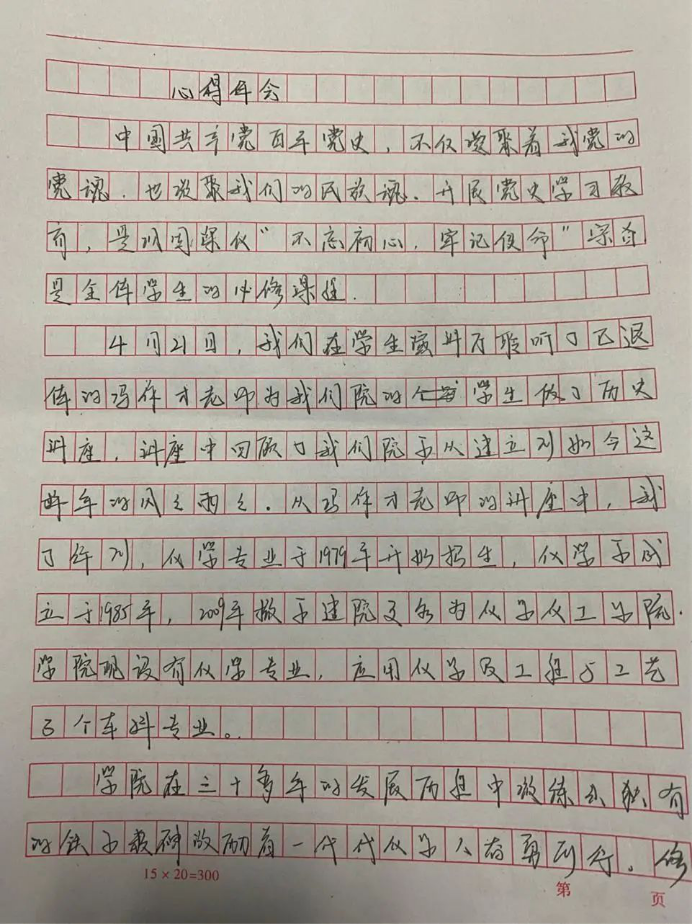 心得体会
中国共产党百年党史，不仅凝聚着我党的
党魂，也凝聚我们的民族魂。开展党史学习教
育，是巩固深化"不忘初心，牢记使命"
是全体学生的必修课程。
4月21日，我们在学生 厅聆听了已退
休的冯作才老师为我们院的 学生做了历史
讲座，讲座中回顾了我们院系从建立到如今这
些年的风风雨雨。从冯作才老师的讲座中，我
了解到，化学专业于1979年开始招生，化学系成
立于1985年，2009年撤系建院更名为化学化工学院。
学院现设有化学专业，应用化学及工程与工艺
3个本科专业。
学院在三十多年的发展历程中凝练出独有
的铁 激励着一代代化学人奋勇前行。
15×20=300
第 页